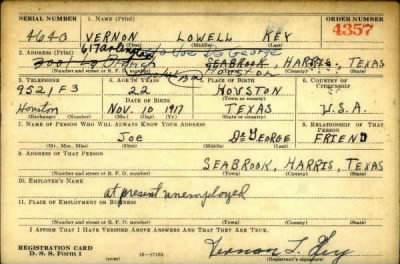 SERIAL NUMBER 1. NAME (Print) ORDER NUMBER
4640 VERNON LOWELL KEY 4357
(First) (Middle) (Last)
2. ADDRESS (Print)
Joe De George
SEABROOK, HARRIS, TEXAS
Houston
(Number and street or R. F. D. number) (Town) (County) (State)
3. TELEPHONE 4. AGE IN YEARS 5. PLACE OF BIRTH 6. COUNTRY OF CITIZENSHIP
9521F3 22 HOUSTON
DATE OF BIRTH (Town or county)
Houston Nov. 10, 1917 TEXAS U.S.A.
(Exchange) (Number) (Mo.) (Day) (Yr.) (State or country)
7. NAME OF PERSON WHO WILL ALWAYS KNOW YOUR ADDRESS 8. RELATIONSHIP OF THAT PERSON
Joe De George FRIEND
(Mr., Mrs., Miss) (First) (Middle) (Last)
9. ADDRESS OF THAT PERSON
SEABROOK, HARRIS, TEXAS
(Number and street or R. F. D. number) (Town) (County) (State)
10. EMPLOYER'S NAME
at present unemployed
11. PLACE OF EMPLOYMENT OR BUSINESS
(Number and street or R. F. D. number) (Town) (County) (State)
I AFFIRM THAT I HAVE VERIFIED ABOVE ANSWERS AND THAT THEY ARE TRUE.
REGISTRATION CARD
D. S. S. Form 1 Vernon L. Key
(over) (Registrant's signature)